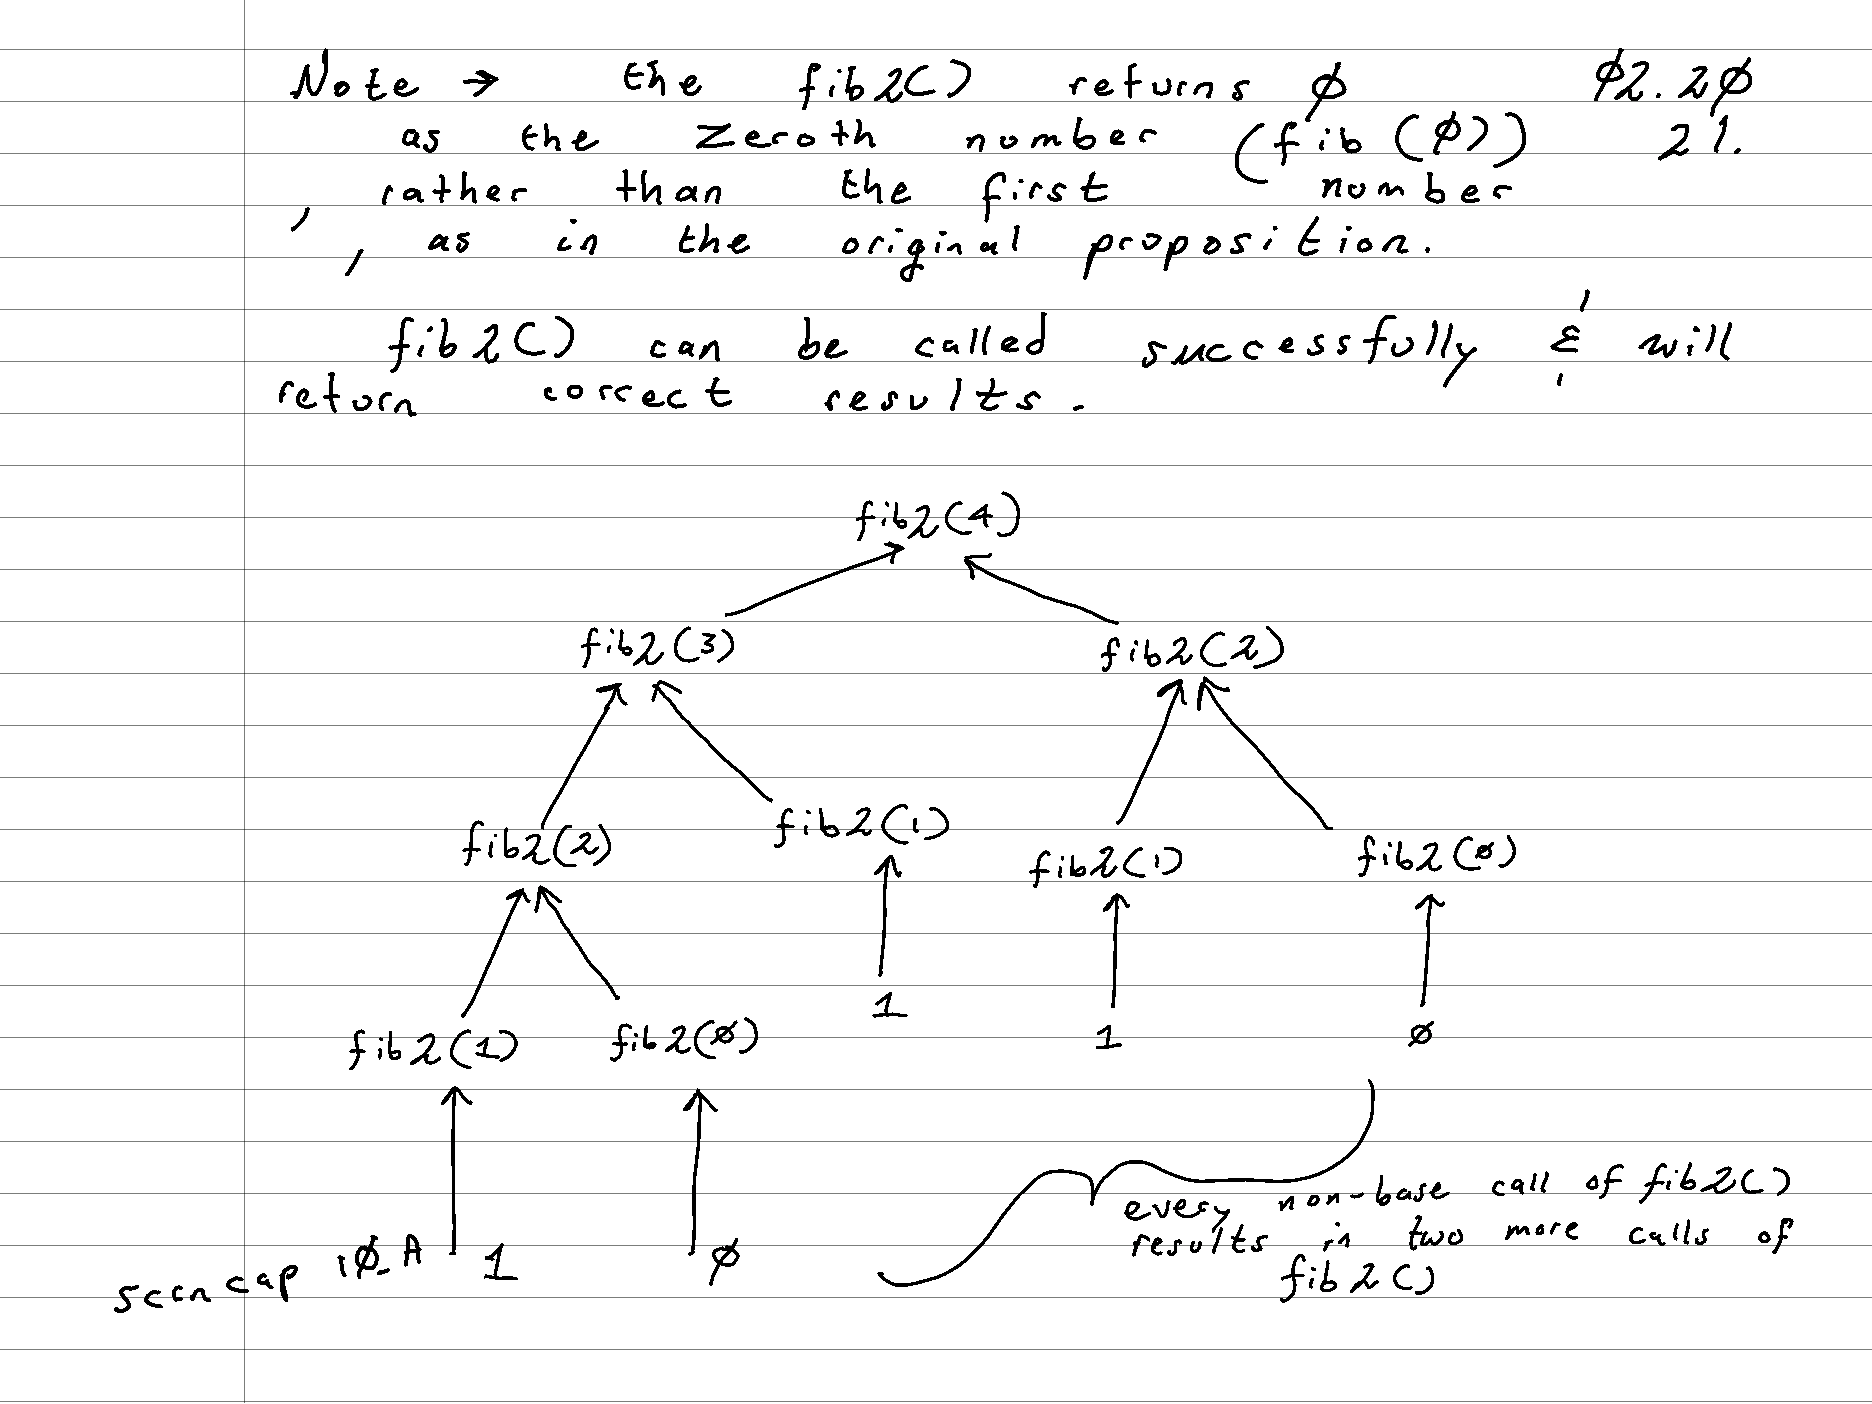 Note → the fib2() returns ø ø2.2ø
as the zeroth number (fib(ø)) 21.
, rather than the first number
, as in the original proposition.
fib2() can be called successfully & will
return correct results.
fib2(4)
fib2(3) fib2(2)
fib2(2) fib2(1) fib2(1) fib2(ø)
1
fib2(1) fib2(ø) 1 ø
every non-base call of fib2()
results in two more calls of
fib2()
sccncap 1ø_A 1 ø